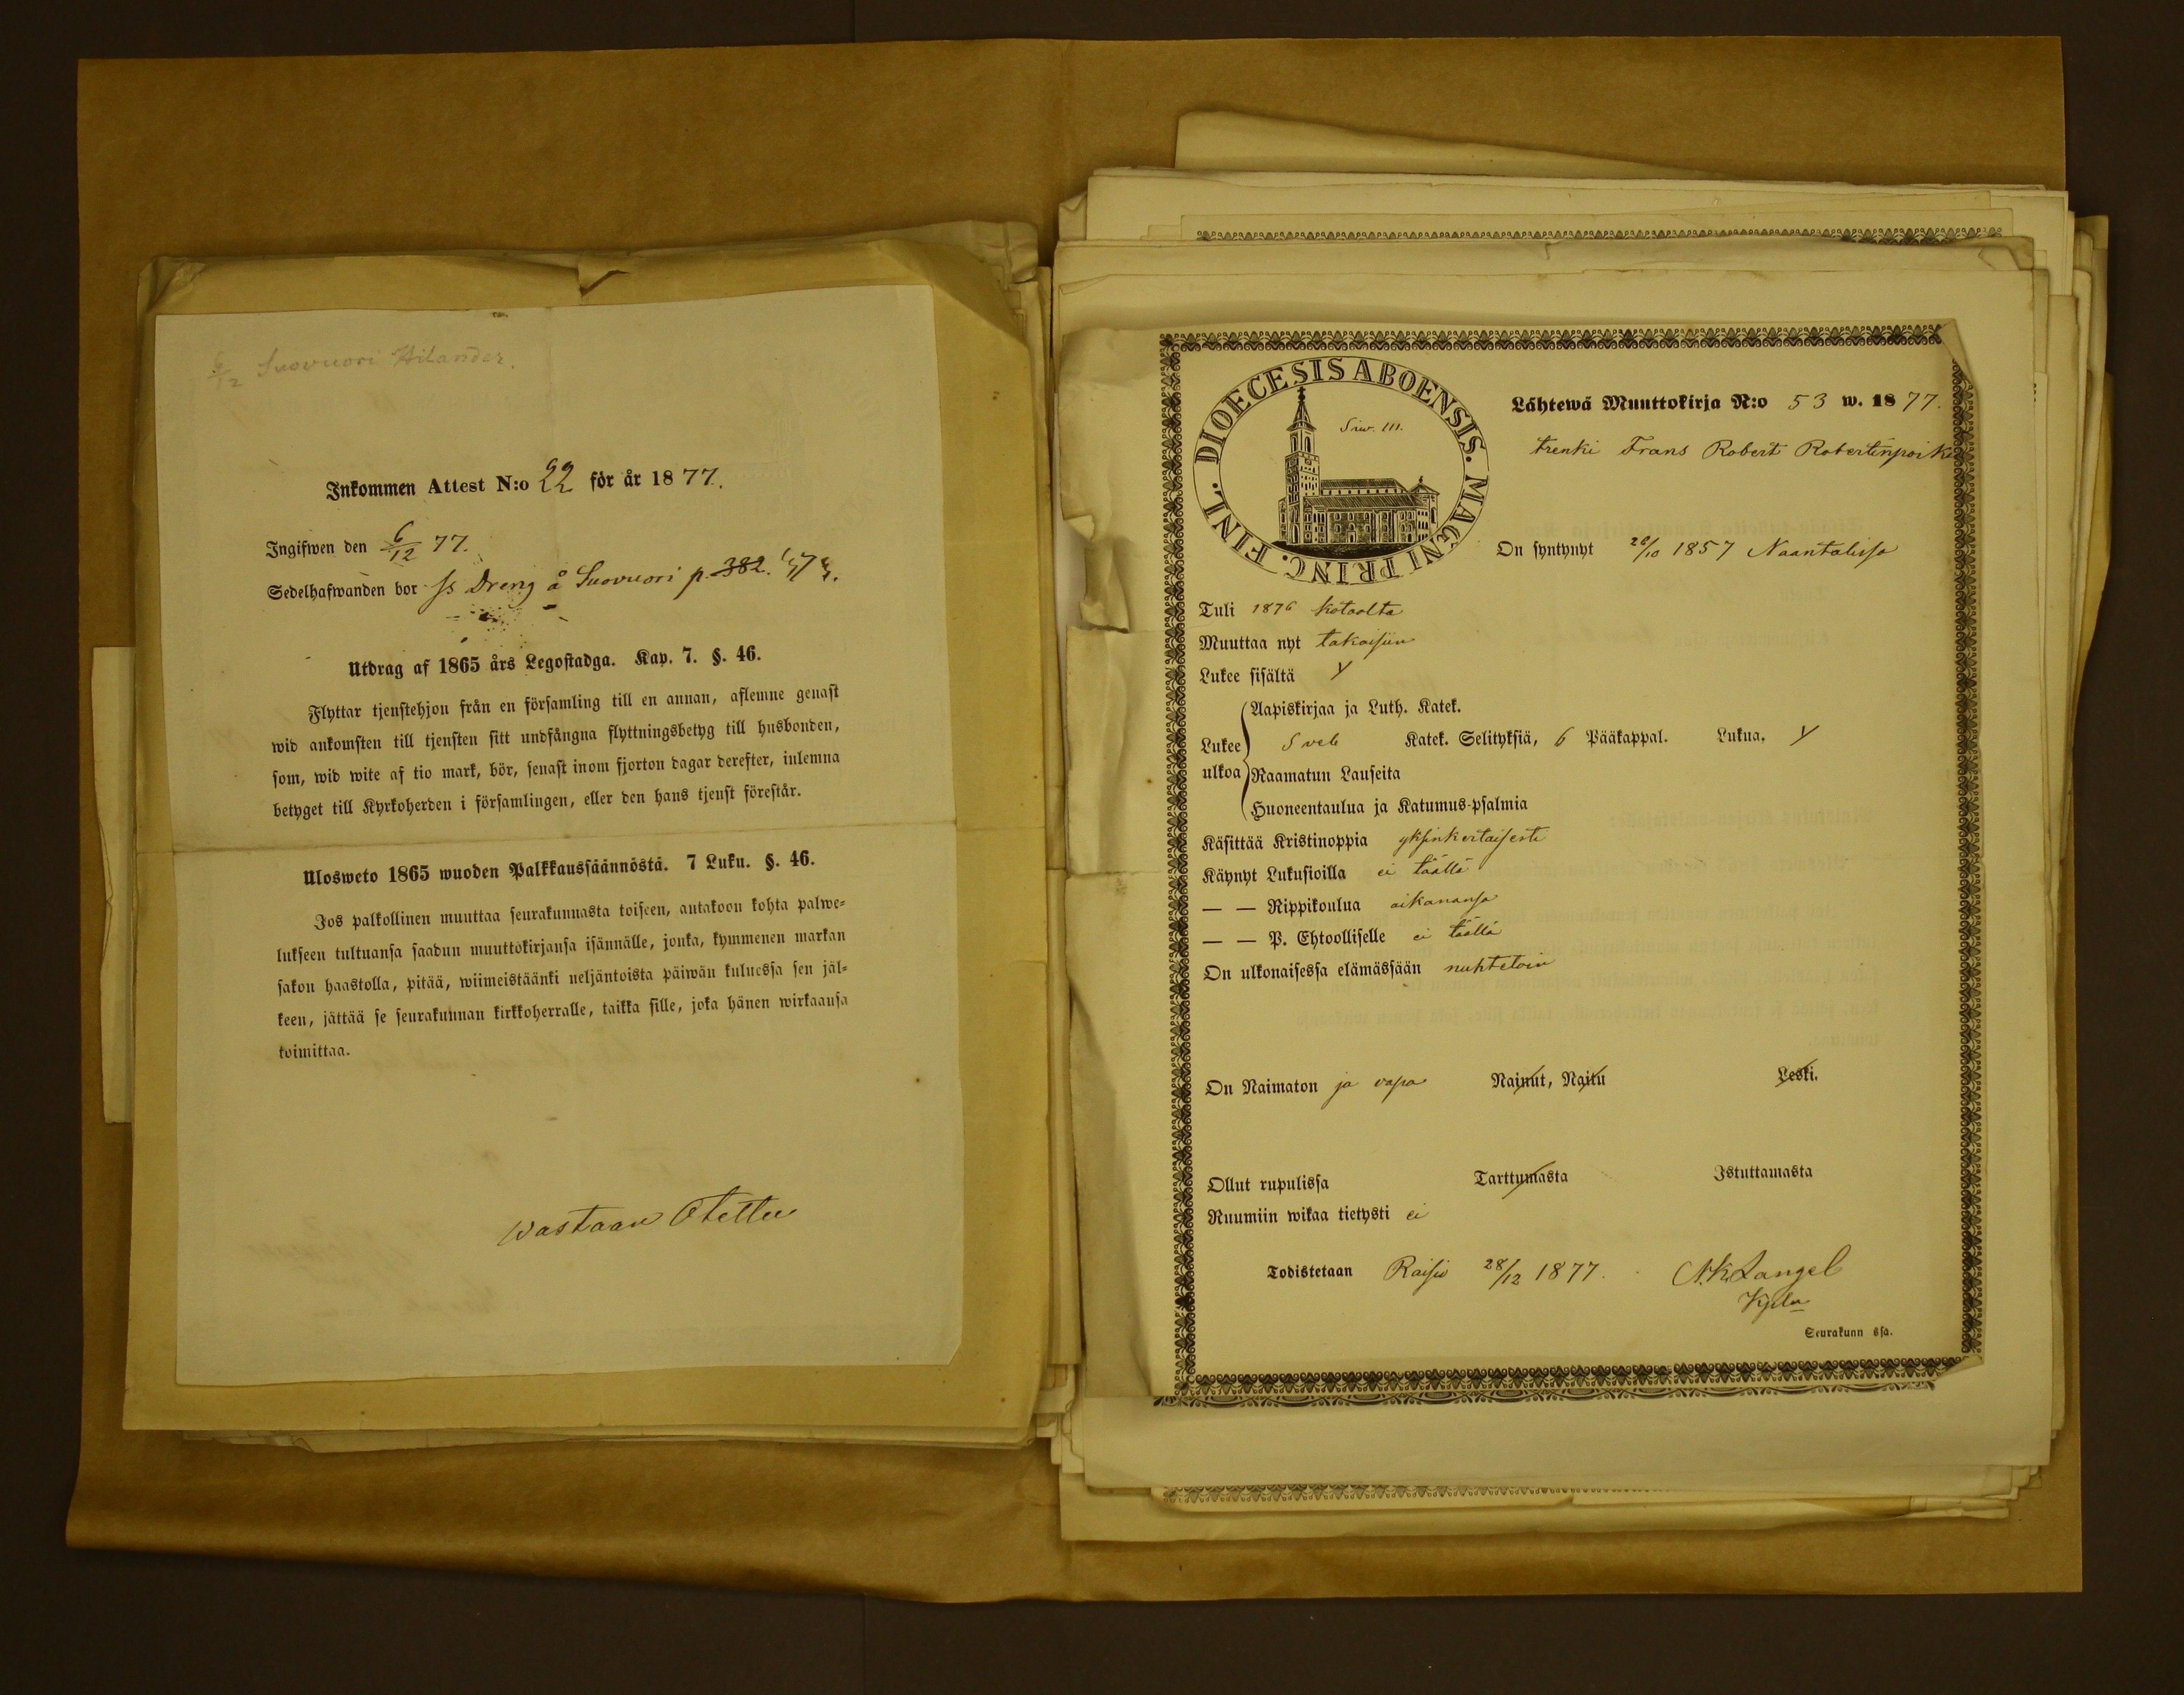 6/12 Suovuori Hilander.
Inkommen Attest N:o 22 för år 1877.
Ingifwen den 6/12 77.
Sedelhafwanden bor ss Dreng å Suovuori p. 382.
Utdrag af 1865 års Legostadga. Kap. 7. §. 46.
Flyttar tjenstehjon från en församling till en annan, aflemne genast
wid ankomsten till tjensten sitt undfångna flyttningsbetyg till husbonden,
som, wid wite af tio mark, bör, senast inom fjorton dagar derefter, inlemna
betyget till Kyrkoherden i församlingen, eller den hans tjenst förestår.
Ulosweto 1865 wuoden Palkkaussäännöstä. 7 Luku. §. 46.
Jos palkollinen muuttaa seurakunnasta toiseen, antakoon kohta palwe-
lukseen tultuansa saadun muuttokirjansa isännälle, jonka, kymmenen markan
sakon haastolla, pitää, wiimeistäänki neljäntoista päiwän kuluessa sen jäl-
keen, jättää se seurakunnan kirkkoherralle, taikka sille, joka hänen wirkaansa
toimittaa.
wastaan Otettu
DIOECESIS ABOENSIS. MAGNI PRINC. FINL.
Siw. III.
Lähtewä Muuttokirja N:o 53 w. 1877.
trenki Frans Robert Robertinpoika
On syntynyt 28/10 1857 Naantalissa
Tuli 1876 kotoolta
Muuttaa nyt takaisiin
Lukee sisältä y
Aapiskirjaa ja Luth. Katek.
Lukee ulkoa Sveb Katek. Selityksiä, 6 Pääkappal. Lukua. y
Raamatun Lauseita
Huoneentaulua ja Katumus-psalmia
Käsittää Kristinoppia yksinkertaisesti
Käynyt Lukusioilla ei täällä
— — Rippikoulua aikanansa
— — P. Ehtoolliselle ei täällä
On ulkonaisessa elämässään nuhtetoin
On Naimaton ja vapa Nainut, Naitu Leski.
Ollut rupulissa Tarttumasta Istuttamasta
Ruumiin wikaa tietysti ei
Todistetaan Raisio 28/12 1877. A.K. Langel
Kpln
Seurakunn ssa.